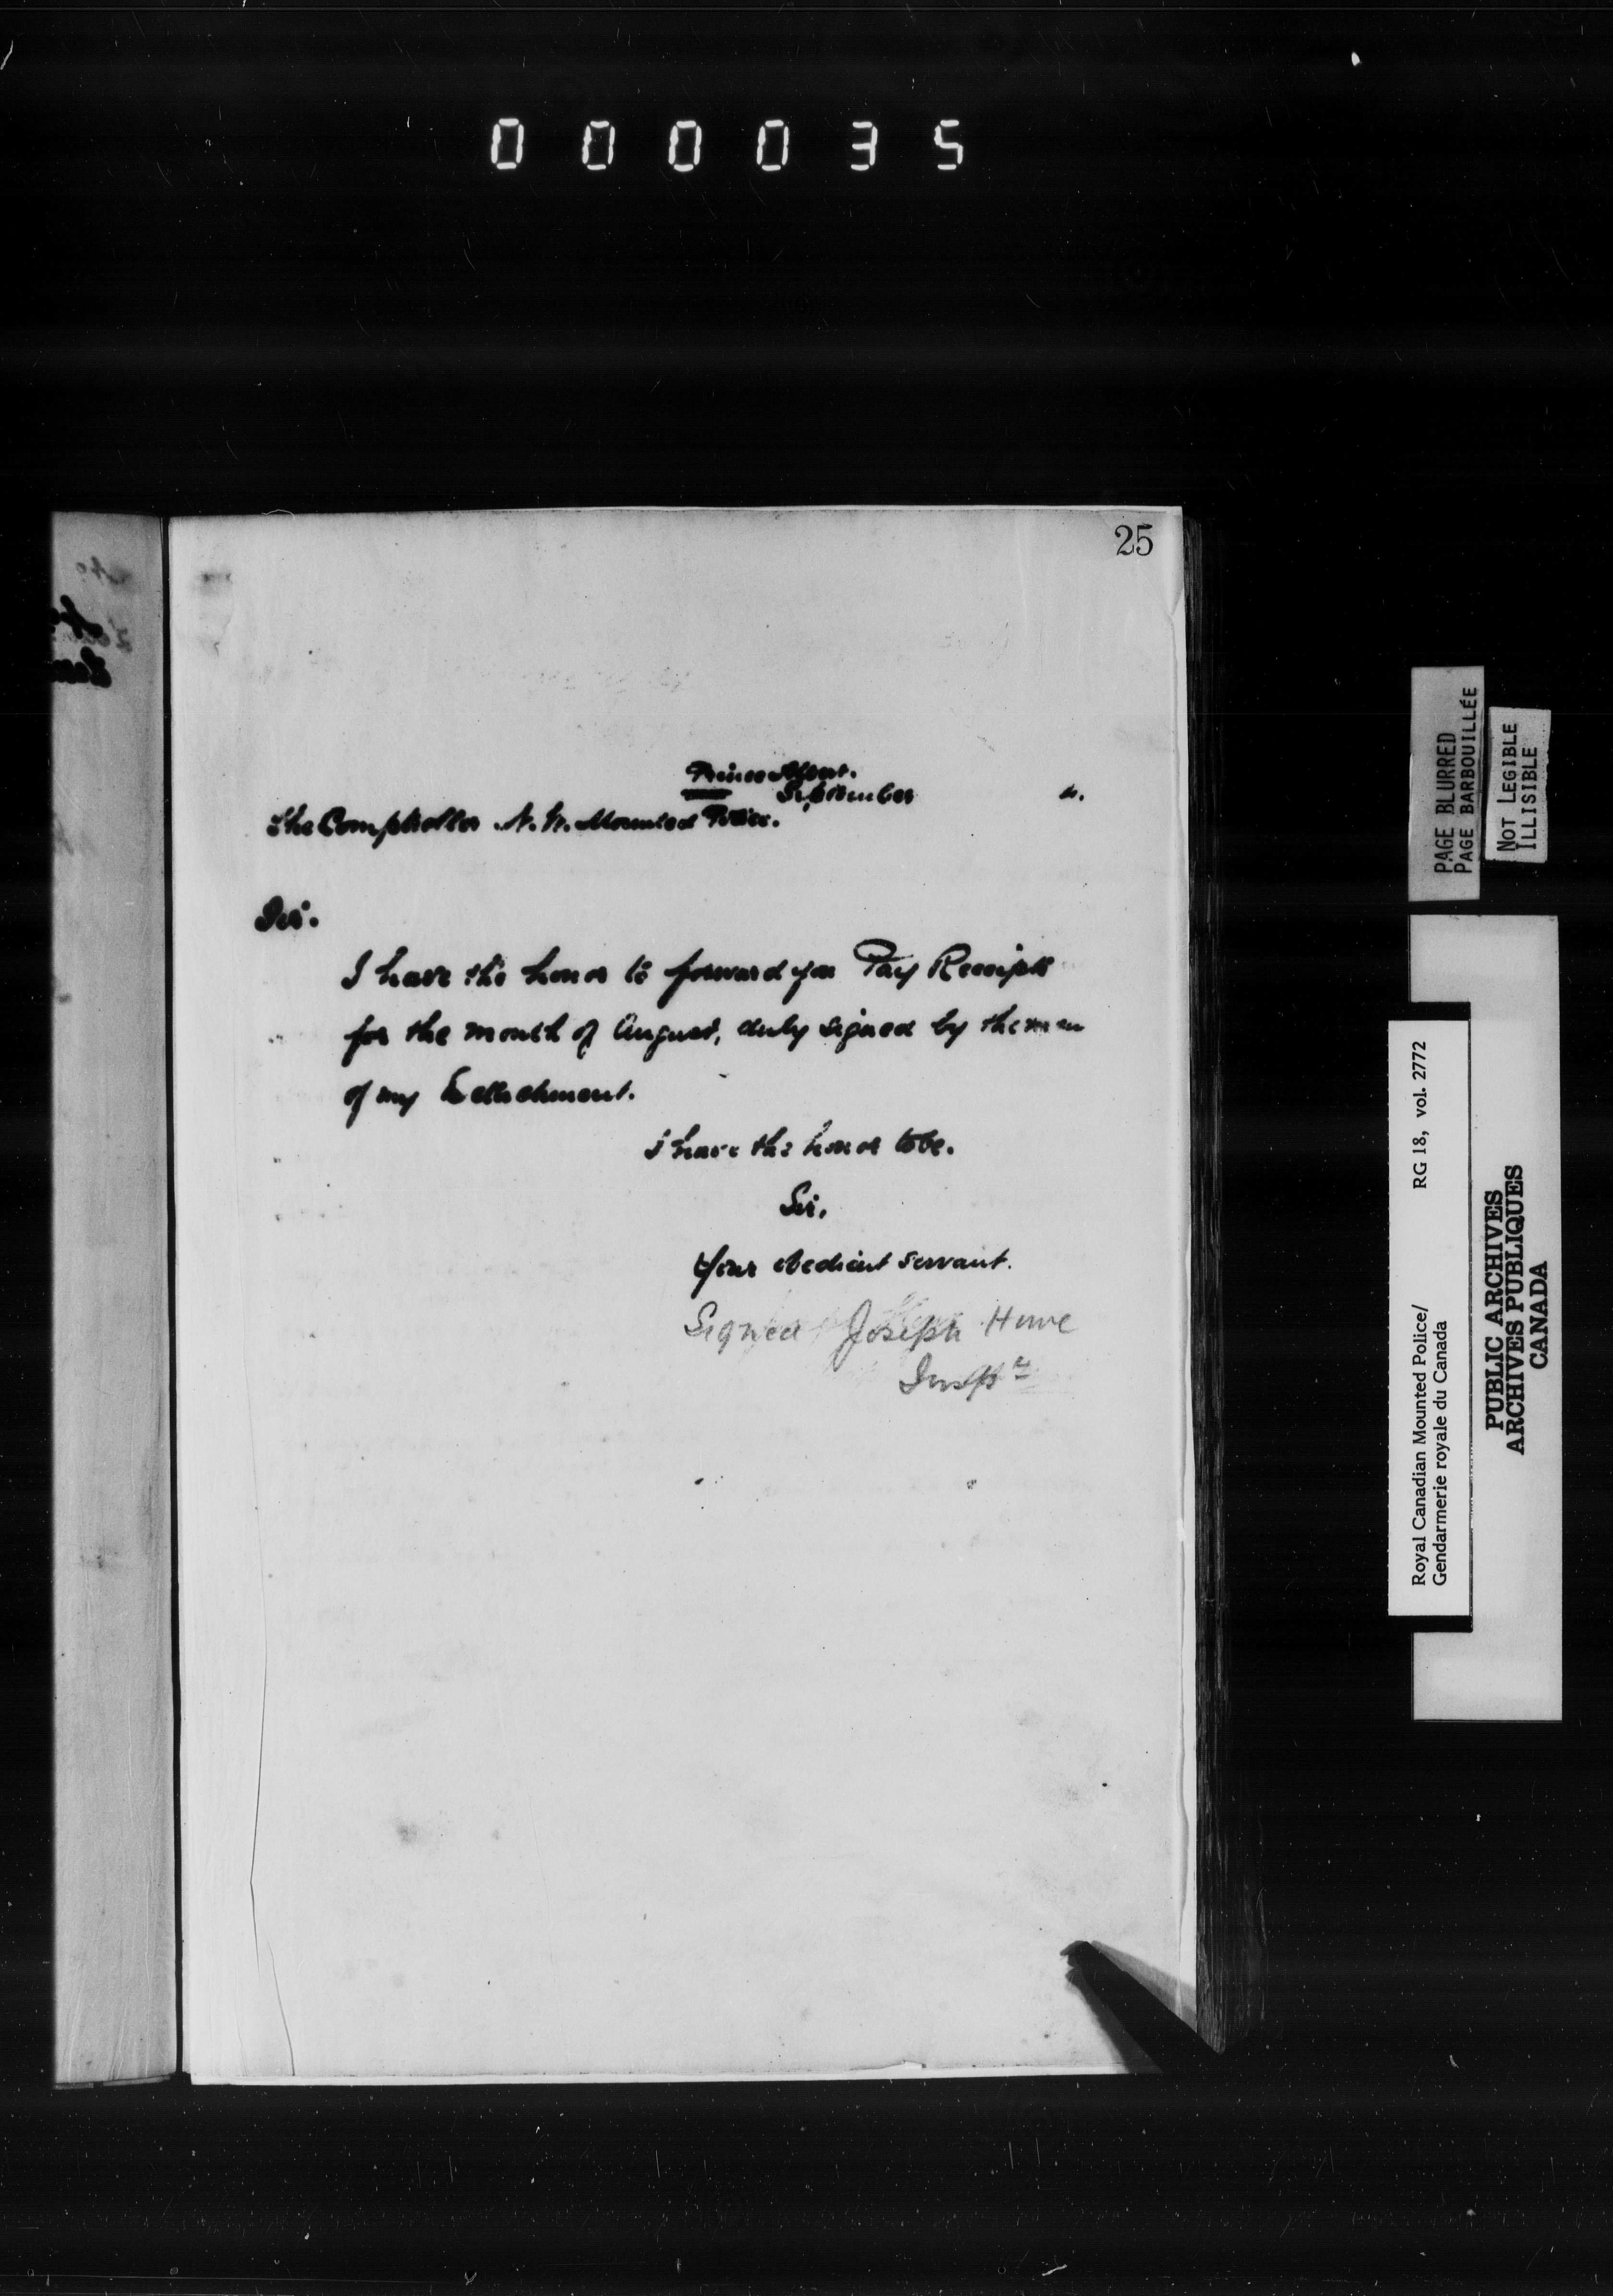 000035
25
Prince Albert.
September
The Comptroller N. W. Mounted Police.
Sir.
I have the honor to forward you Pay Receipts
for the month of August, duly signed by the men
of my Dettachment.
I have the honor to be.
Sir,
Your obedient servant.
Signed Joseph Howe
Inspr
PAGE BLURRED
PAGE BARBOUILLÉE
NOT LEGIBLE
ILLISIBLE
Royal Canadian Mounted Police/ RG 18, vol. 2772
Gendarmerie royale du Canada
PUBLIC ARCHIVES
ARCHIVES PUBLIQUES
CANADA